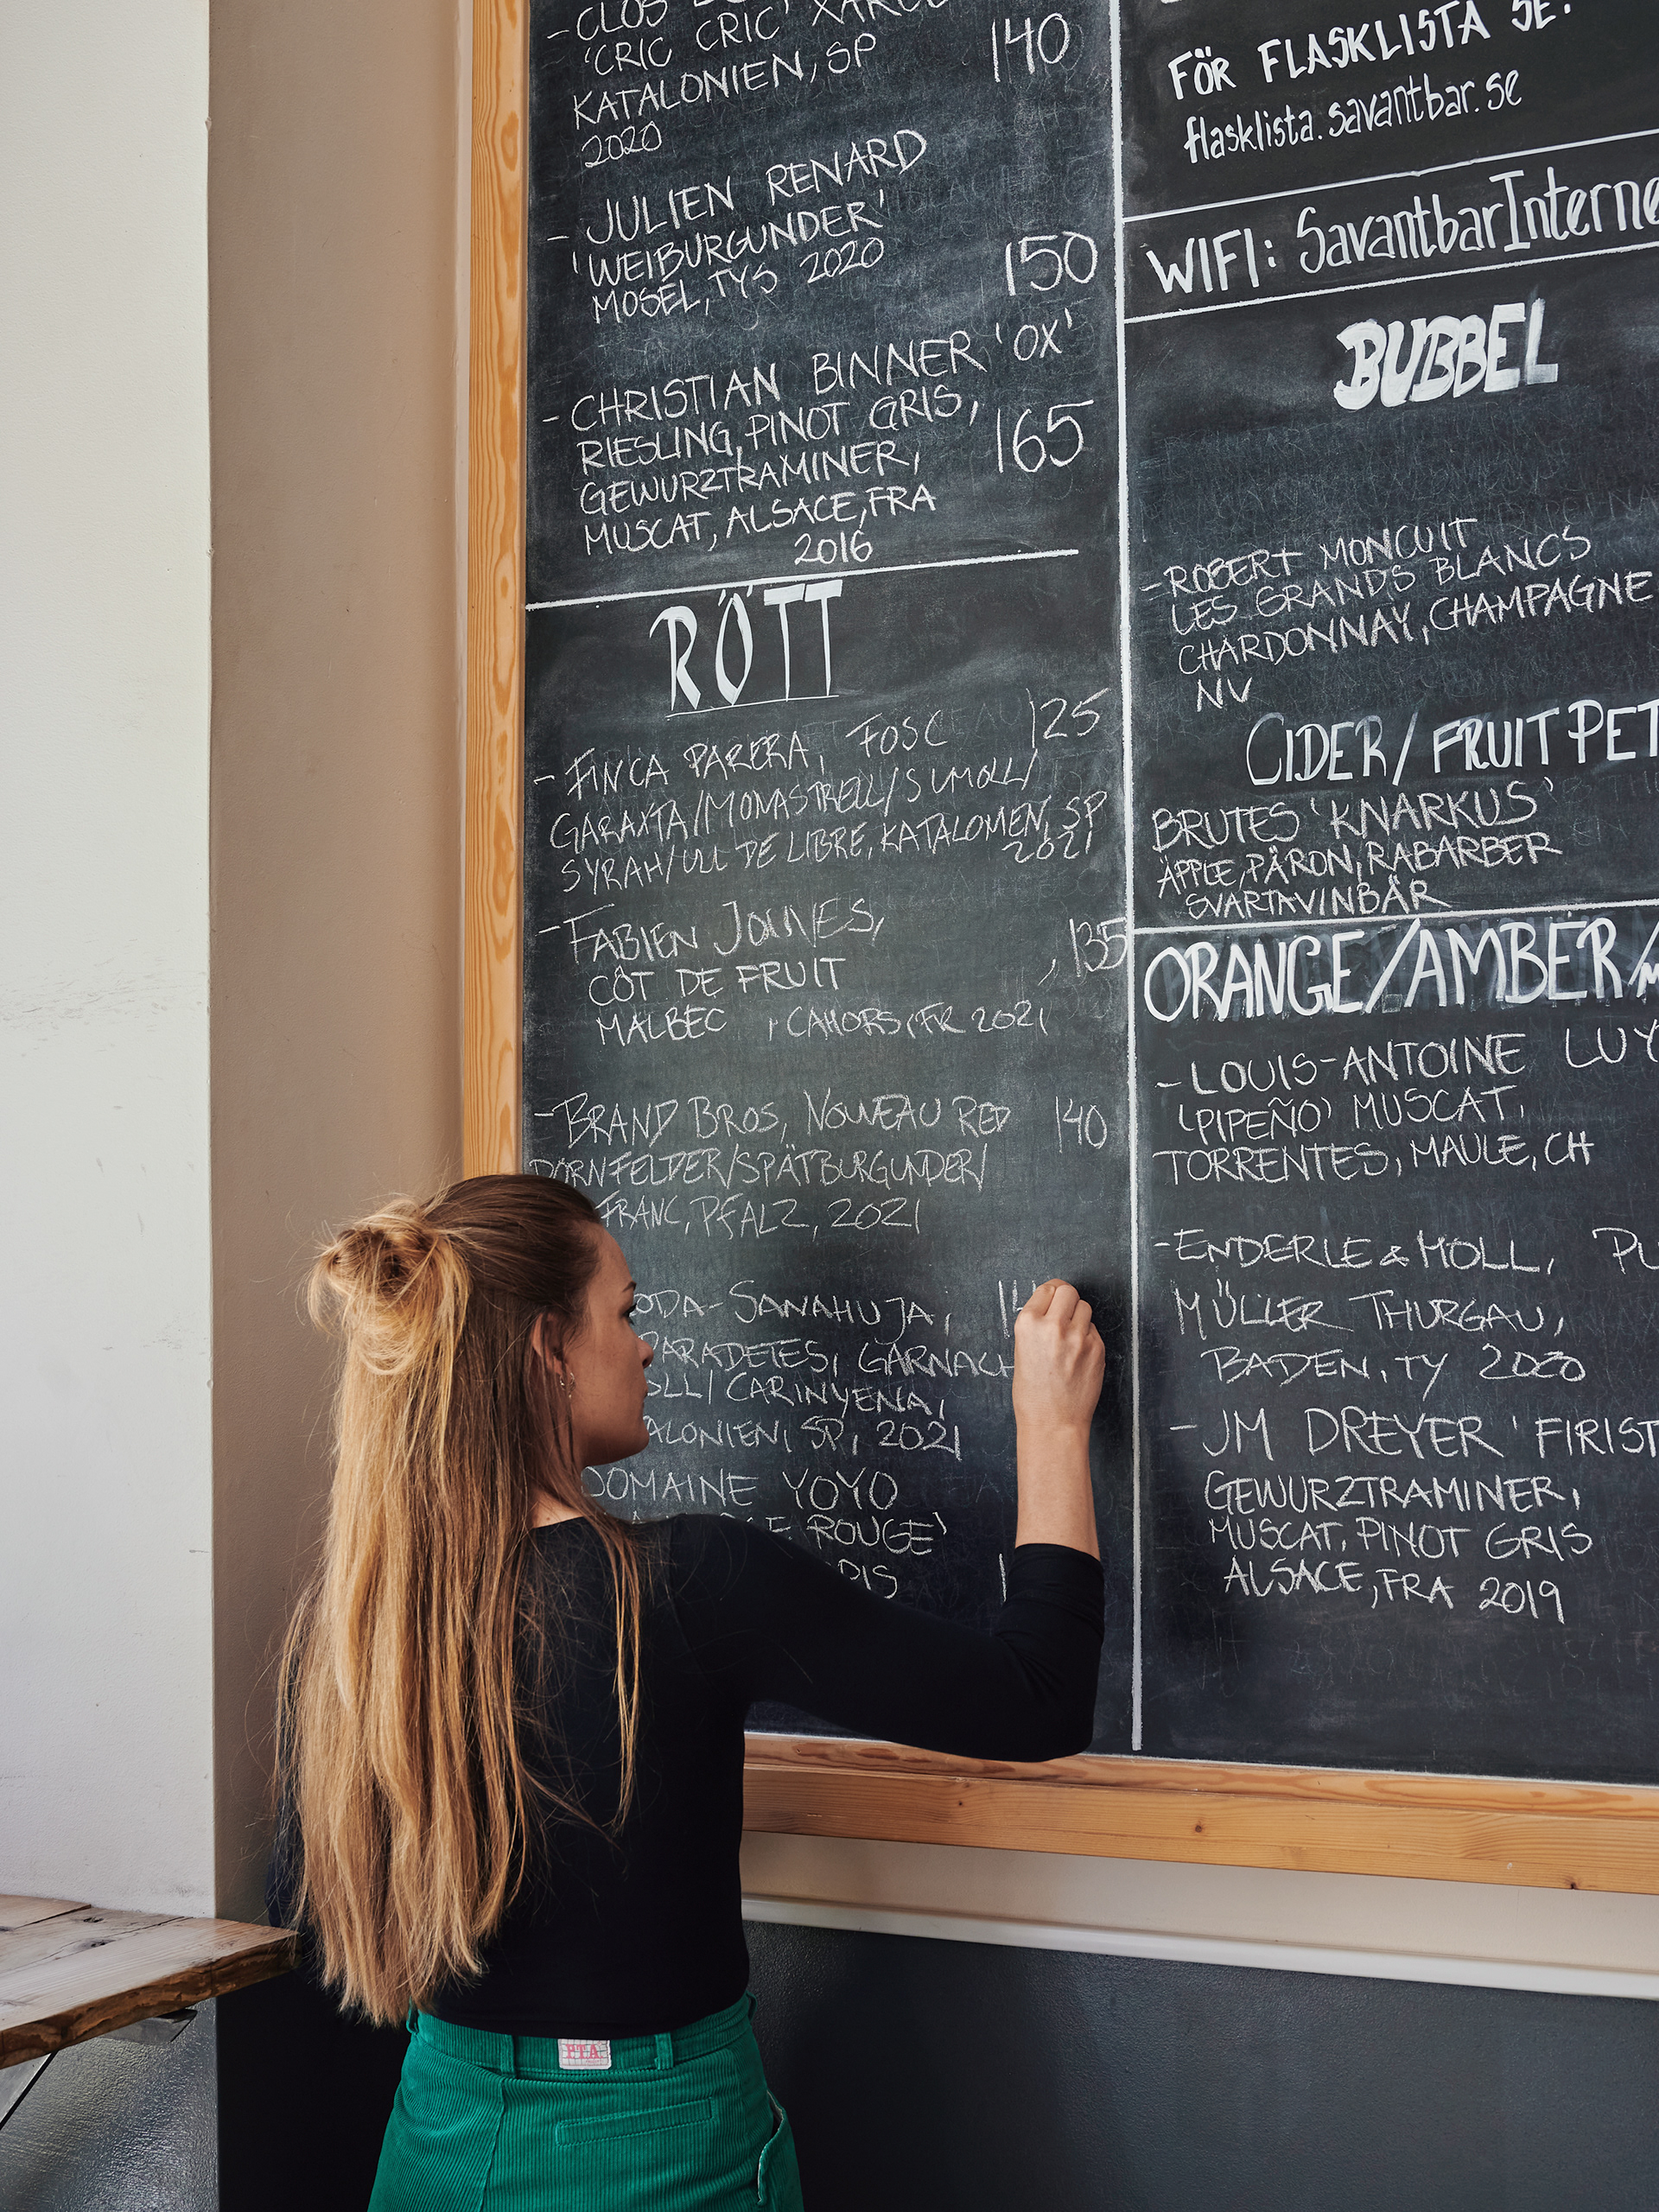 - CLOS
'CRIC CRIC'
KATALONIEN, SP 140
2020
- JULIEN RENARD
'WEIBURGUNDER'
MOSEL, TYS 2020 150
- CHRISTIAN BINNER 'OX'
RIESLING, PINOT GRIS,
GEWURZTRAMINER, 165
MUSCAT, ALSACE, FRA
2016
RÖTT
- FINCA PARERA, FOSC 125
GARAXTA/MONASTRELL/SUMOLL/
SYRAH/ULL DE LIBRE, KATALONIEN, SP
2021
- FABIEN JOUVES,
CÔT DE FRUIT , 135
MALBEC , CAHORS, FR 2021
- BRAND BROS, NOUVEAU RED 140
DORNFELDER/SPÄTBURGUNDER/
FRANC, PFALZ, 2021
ODA-SANAHUJA,
PARADETES, GARNACH
OLL/CARINYENA,
ALONIEN, SP, 2021
DOMAINE YOYO
ROUGE'
FÖR FLASKLISTA SE:
flasklista.savantbar.se
WIFI: SavantbarInterne
BUBBEL
- ROBERT MONCUIT
LES GRANDS BLANCS
CHARDONNAY, CHAMPAGNE
NV
CIDER/FRUITPET
BRUTES 'KNARKUS'
ÄPPLE, PÄRON, RABARBER
SVARTAVINBÄR
ORANGE/AMBER/
- LOUIS-ANTOINE LUY
'PIPEÑO' MUSCAT,
TORRENTES, MAULE, CH
- ENDERLE & MOLL, PU
MÜLLER THURGAU,
BADEN, TY 2020
- JM DREYER 'FIRIST
GEWURZTRAMINER,
MUSCAT, PINOT GRIS
ALSACE, FRA 2019